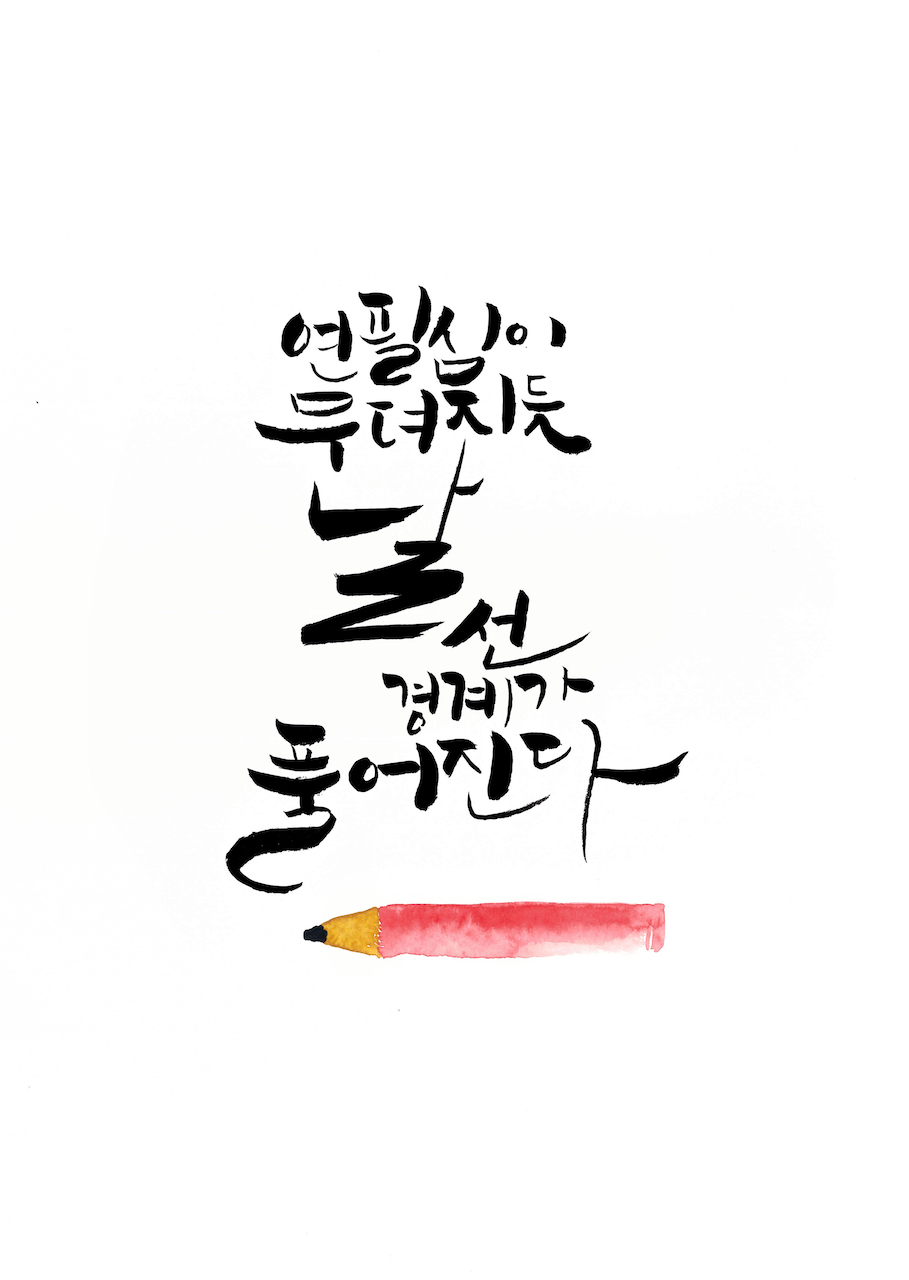 연필심이
무뎌지듯
날 선
경계가
풀어진다